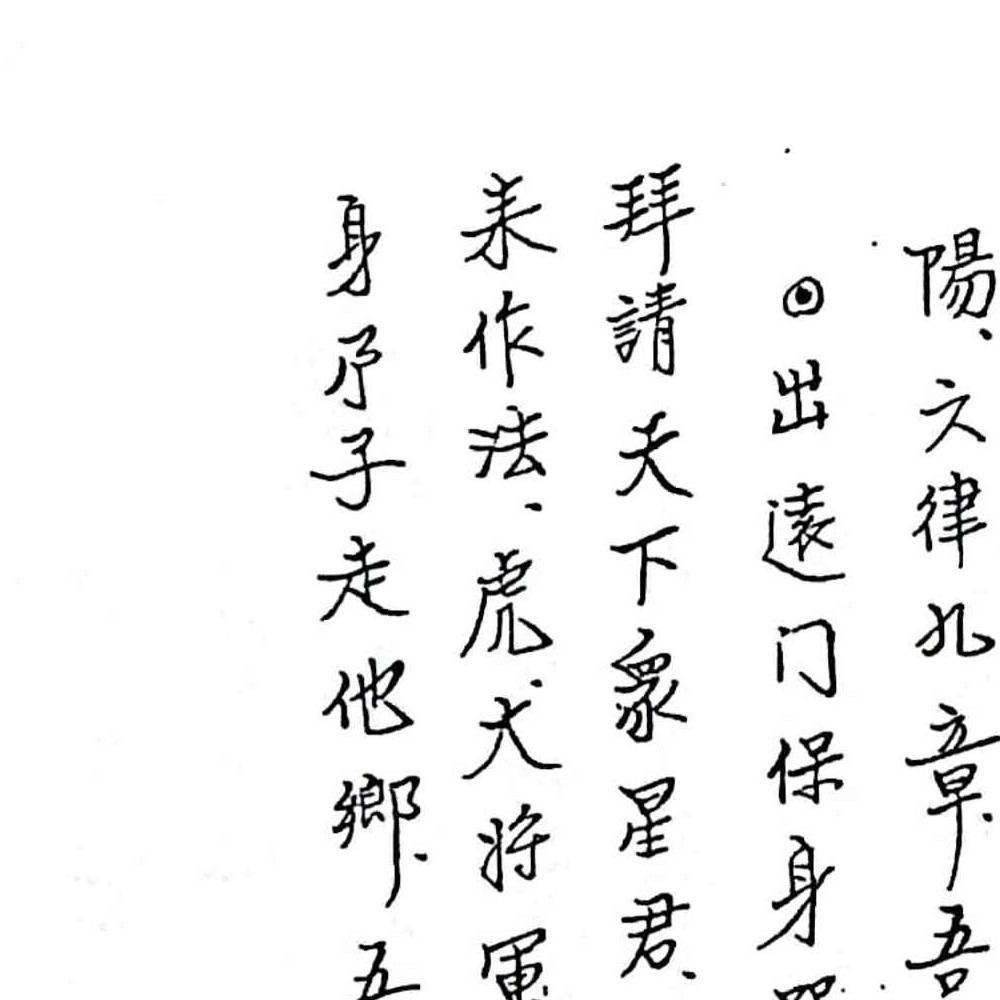 陽、六律九章、吾
⊙出遠门保身
拜請天下衆星君、
来作法、虎犬将軍
身子走他鄉、五